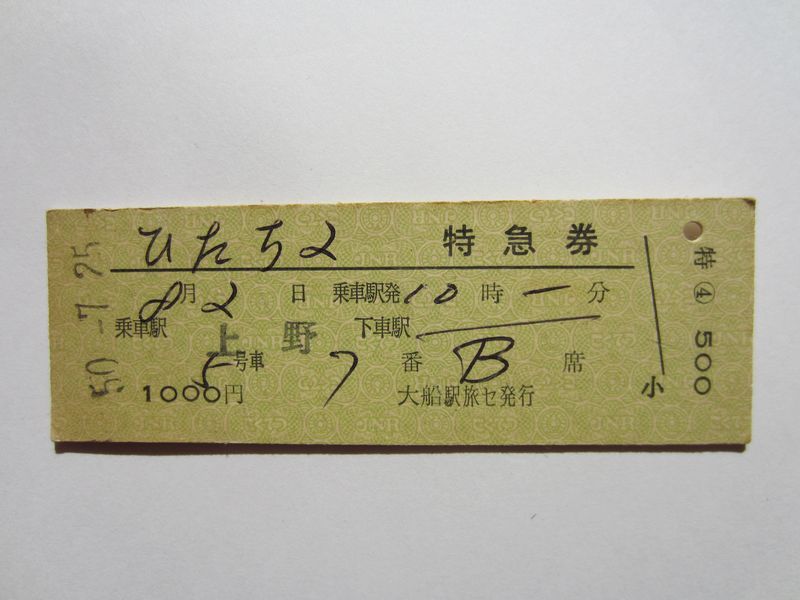 ひたち2 特急券
8月2日 乗車駅発10時-分
乗車駅 上野 下車駅
5号車 7番 B席
1000円 大船駅旅セ発行
小
特④ 500
50-7.25